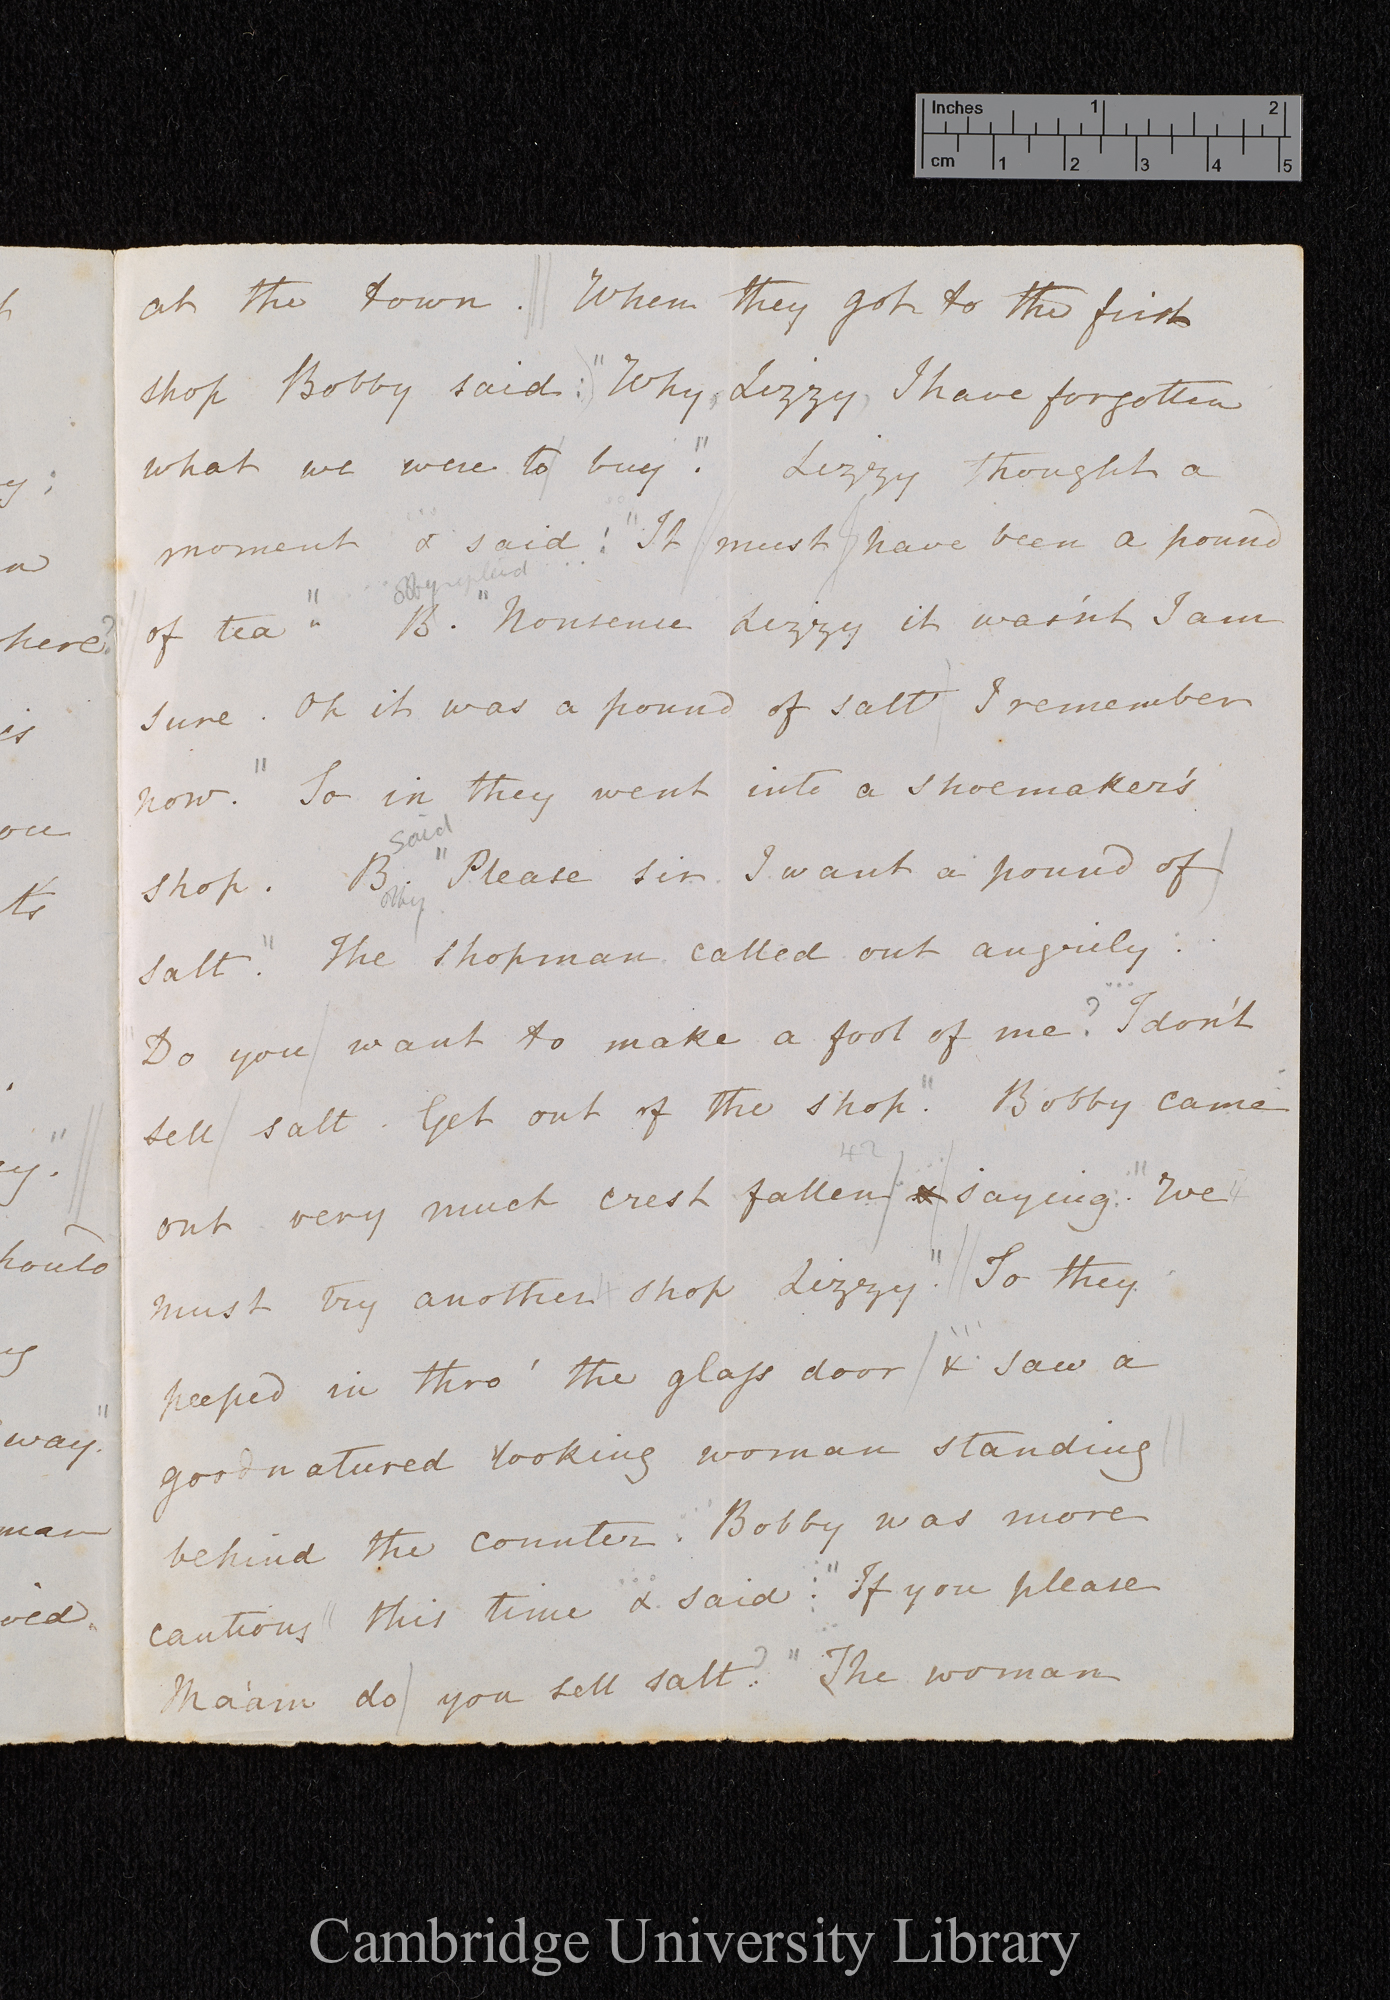 Inches 1 2
cm 1 2 3 4 5
at the town. When they got to the first
shop Bobby said: "Why, Lizzy, I have forgotten
what we were to buy." Lizzy thought a
moment & said: "It must have been a pound
obby replied
of tea". B. "Nonsense Lizzy it was'nt I am
sure. Oh it was a pound of salt I remember
now." So in they went into a shoemaker's
said
shop. B. "Please sir I want a pound of
obby
salt." The shopman called out angrily:
"Do you want to make a fool of me? I don't
sell salt. Get out of the shop". Bobby came
42
out very much crest fallen & saying: "We
must try another shop Lizzy". So they
peeped in thro' the glass door & saw a
goodnatured looking woman standing
behind the counter. Bobby was more
cautious this time & said: "If you please
Ma'am do you sell salt?" The woman
here?
is
ou
ts
hould
way."
man
ved.
Cambridge University Library